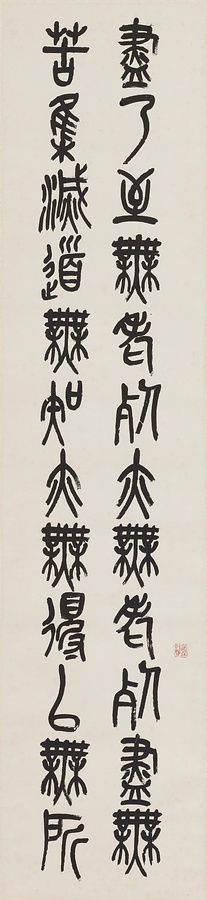 盡乃至無老死亦無老死盡無
苦集滅道無知亦無得以無所